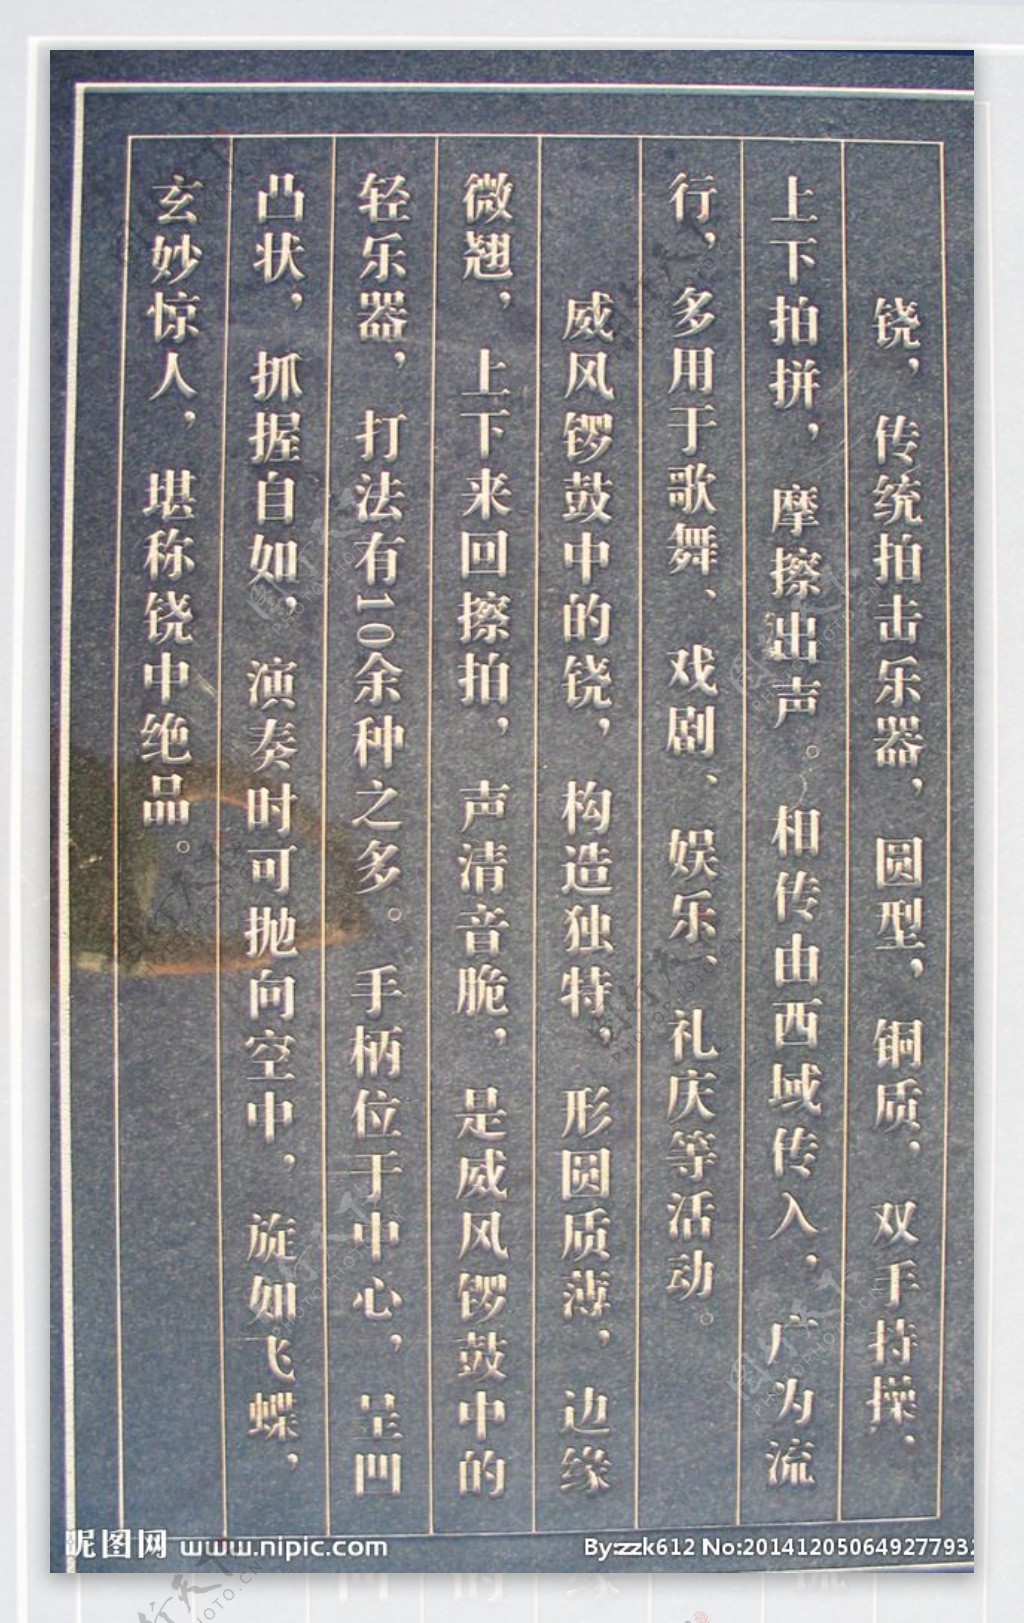 铙，传统拍击乐器，圆型，铜质，双手持操、
上下拍拼，摩擦出声。相传由西域传入，广为流
行，多用于歌舞、戏剧、娱乐、礼庆等活动。
威风锣鼓中的铙，构造独特，形圆质薄，边缘
微翘，上下来回擦拍，声清音脆，是威风锣鼓中的
轻乐器，打法有10余种之多。手柄位于中心，呈凹
凸状，抓握自如，演奏时可抛向空中，旋如飞蝶，
玄妙惊人，堪称铙中绝品。
昵图网 www.nipic.com
By:zzk612 No:20141205064927793